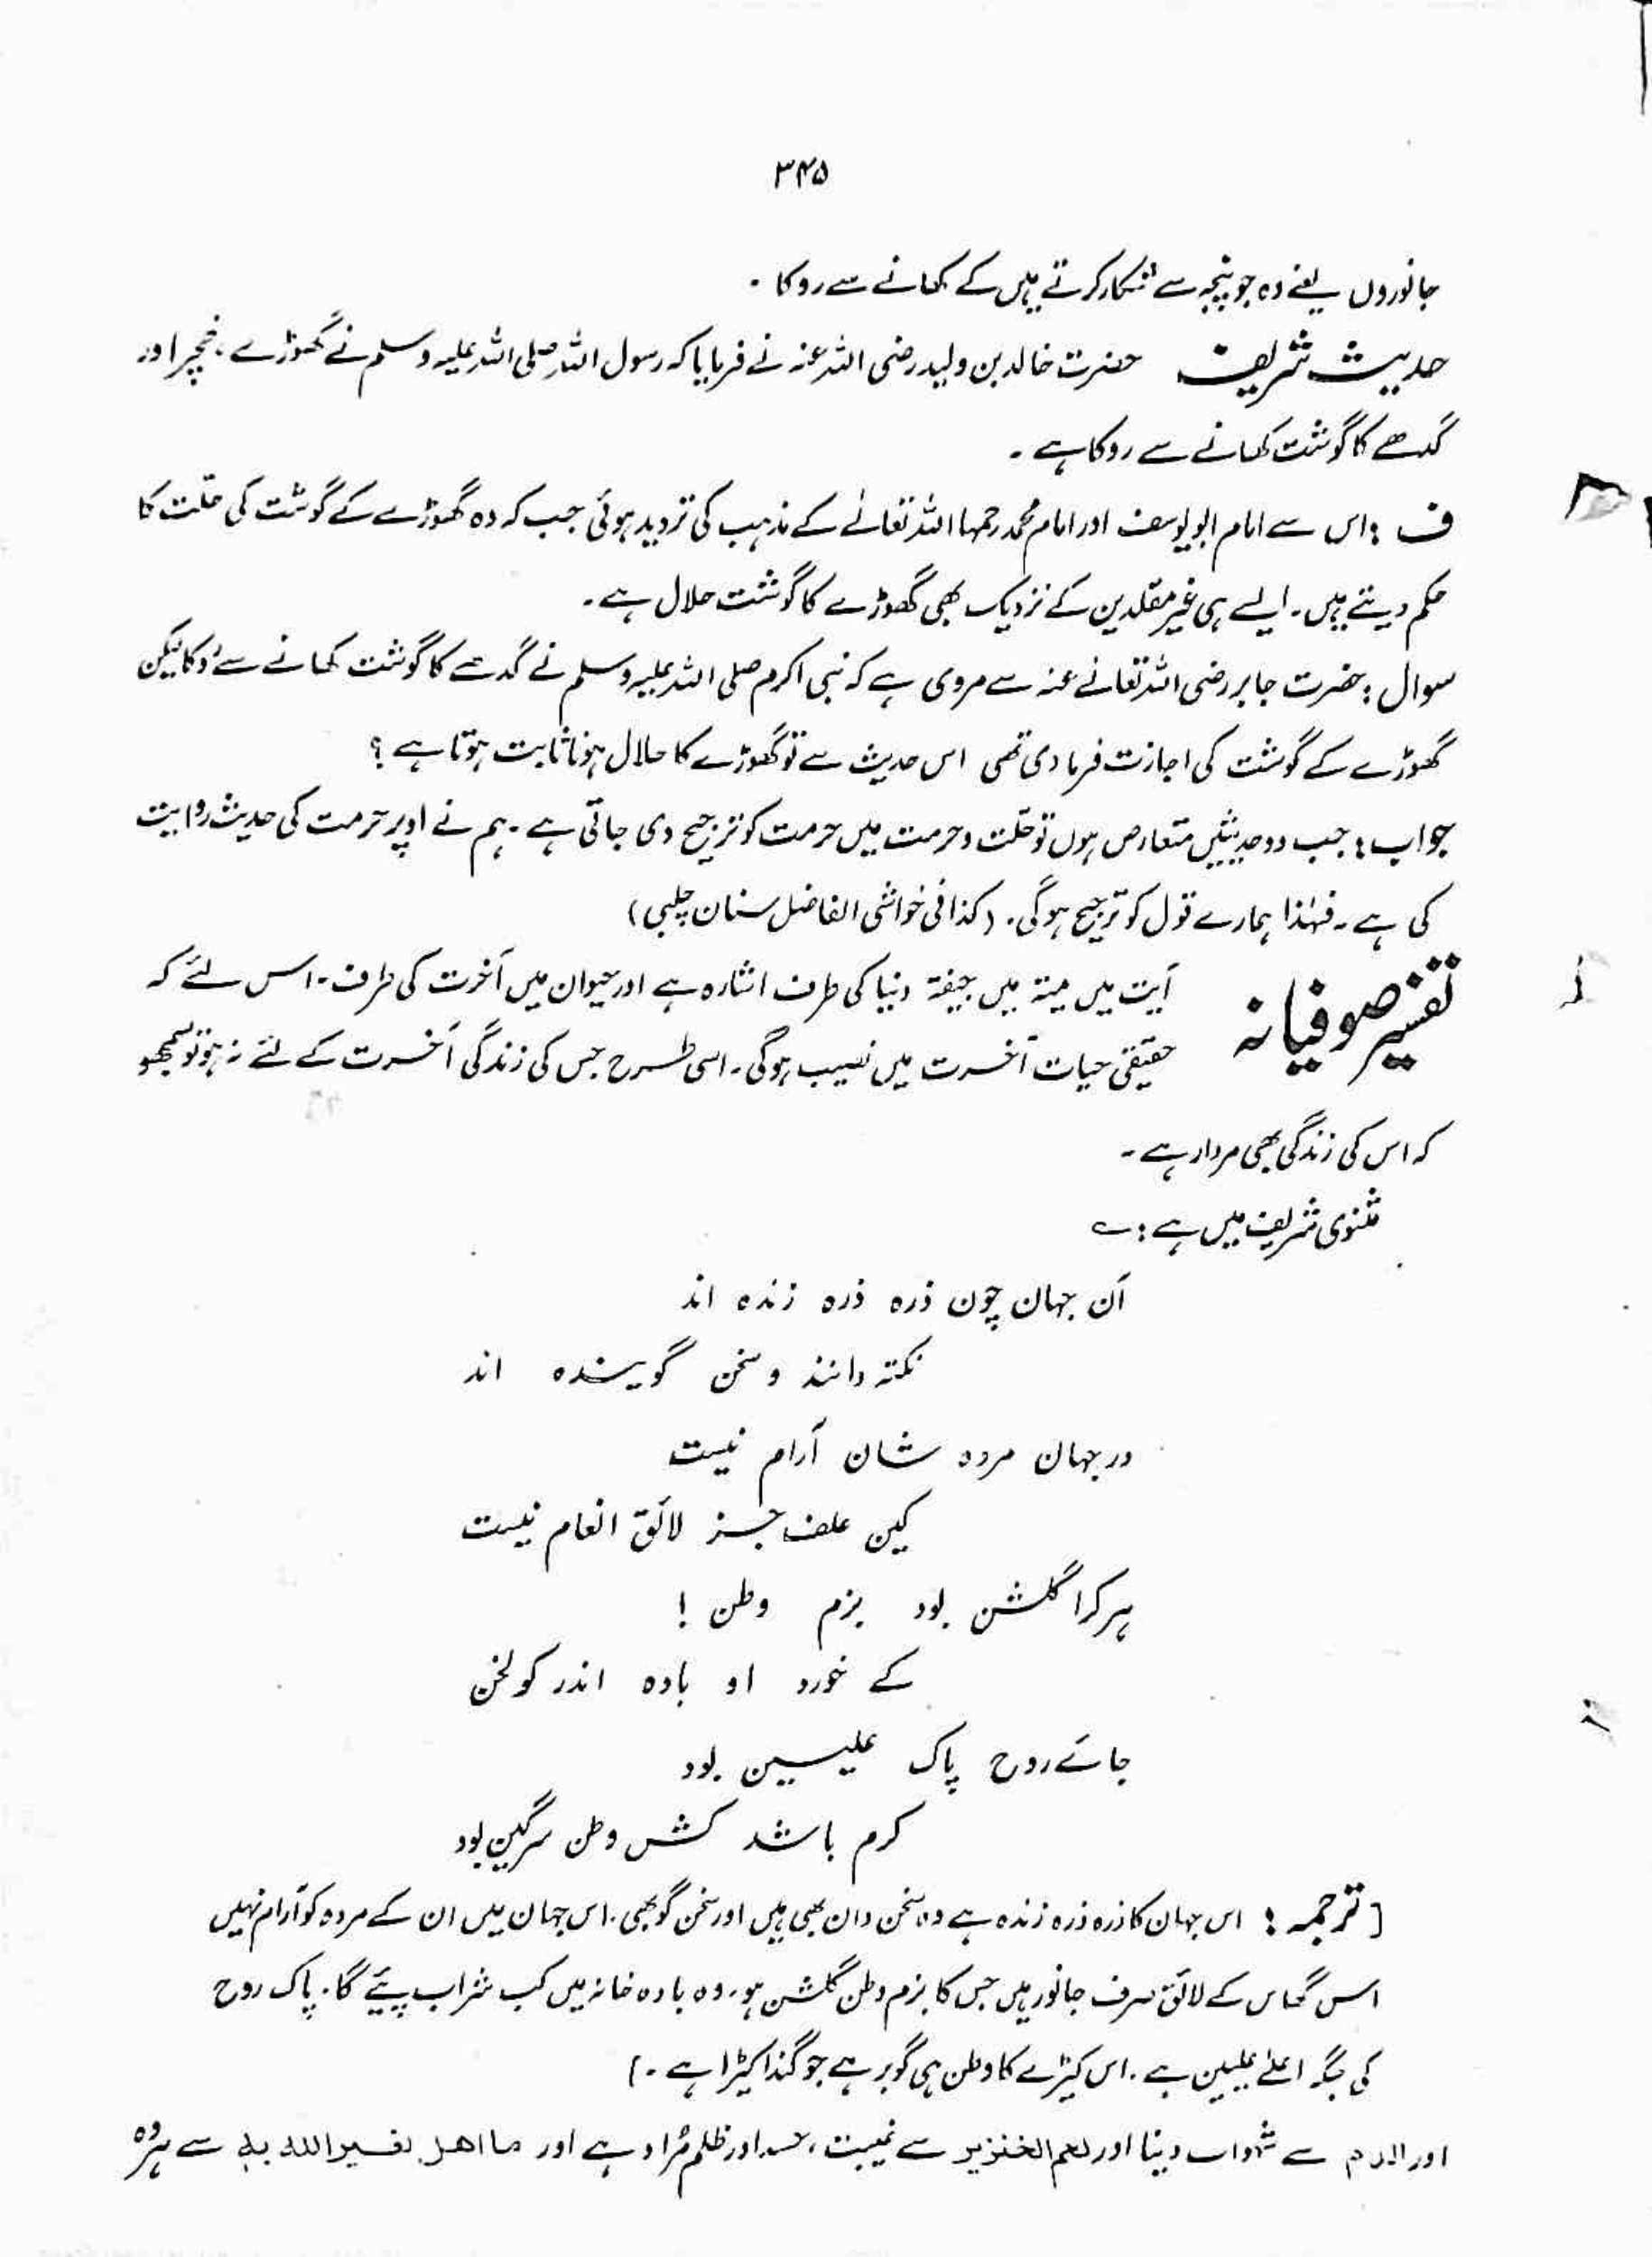 ۳۴۵
جانوروں یعنے وہ جو پنجہ سے شکار کرتے ہیں کے کھانے سے روکا ۔
حدیث شریف حضرت خالد بن ولید رضی اللہ عنہ نے فرمایا کہ رسول اللہ صلی اللہ علیہ وسلم نے گھوڑے ، خچر اور
گدھے کا گوشت کھانے سے روکا ہے ۔
ف : اس سے امام ابو یوسف اور امام محمد رحمہا اللہ تعالٰے کے مذہب کی تردید ہوئی جب کہ وہ گھوڑے کے گوشت کی حلّت کا
حکم دیتے ہیں ۔ ایسے ہی غیر مقلدین کے نزدیک بھی گھوڑے کا گوشت حلال ہے ۔
سوال : حضرت جابر رضی اللہ تعالٰے عنہ سے مروی ہے کہ نبی اکرم صلی اللہ علیہ وسلم نے گدھے کا گوشت کھانے سے رُوکا لیکن
گھوڑے کے گوشت کی اجازت فرما دی تھی اس حدیث سے تو گھوڑے کا حلال ہونا ثابت ہوتا ہے ؟
جواب : جب دو حدیثیں متعارض ہوں تو حلّت و حرمت میں حرمت کو ترجیح دی جاتی ہے ۔ ہم نے اوپر حرمت کی حدیث روایت
کی ہے ۔ فلہٰذا ہمارے قول کو ترجیح ہوگی ۔ (کذا فی خواشی الفاضل سنان چلپی)
تفسیر صوفیانہ آیت میں میتہ میں جیفۃ دنیا کی طرف اشارہ ہے اور حیوان میں آخرت کی طرف ۔ اس لئے کہ
حقیقی حیات آخرت میں نصیب ہوگی ۔ اسی طرح جس کی زندگی آخرت کے لئے نہ ہو تو سمجھو
کہ اس کی زندگی بھی مردار ہے ۔
مثنوی شریف میں ہے : ے
آن جہان چون ذرہ ذرہ زندہ اند
نکتہ دانند و سخن گویندہ اند
در جہان مردہ شان آرام نیست
کین علف جز لائق انعام نیست
ہر کرا گلشن بود بزم وطن !
کے خورد او بادہ اندر کولخن
جائے روح پاک علیین بود
کرم باشد کش وطن سرگین بود
[ ترجمہ : اس جہان کا ذرہ ذرہ زندہ ہے وہ سخن دان بھی ہیں اور سخن گو بھی . اس جہان میں ان کے مردہ کو آرام نہیں
اس گھاس کے لائق صرف جانور ہیں جس کا بزم وطن گلشن ہو . وہ بادہ خانہ میں کب شراب پیئے گا . پاک روح
کی جگہ اعلےٰ علیین ہے . اس کیڑے کا وطن ہی گوبر ہے جو گندا کیڑا ہے ۔ ]
اور الدم سے شہوات دینا اور لحم الخنزیر سے غیبت ، حسد اور ظلم مُراد ہے اور ما اھل بغیر اللہ بہ سے ہر وہ